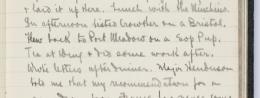 & laid it up here. Lunch with the Minchins.
In afternoon tested Crowther on a Bristol.
Flew back to Port Meadow on a Sop Pup.
Tea at & did some work after.
Wrote letters after dinner. Major Henderson
told me that my recommendation for a